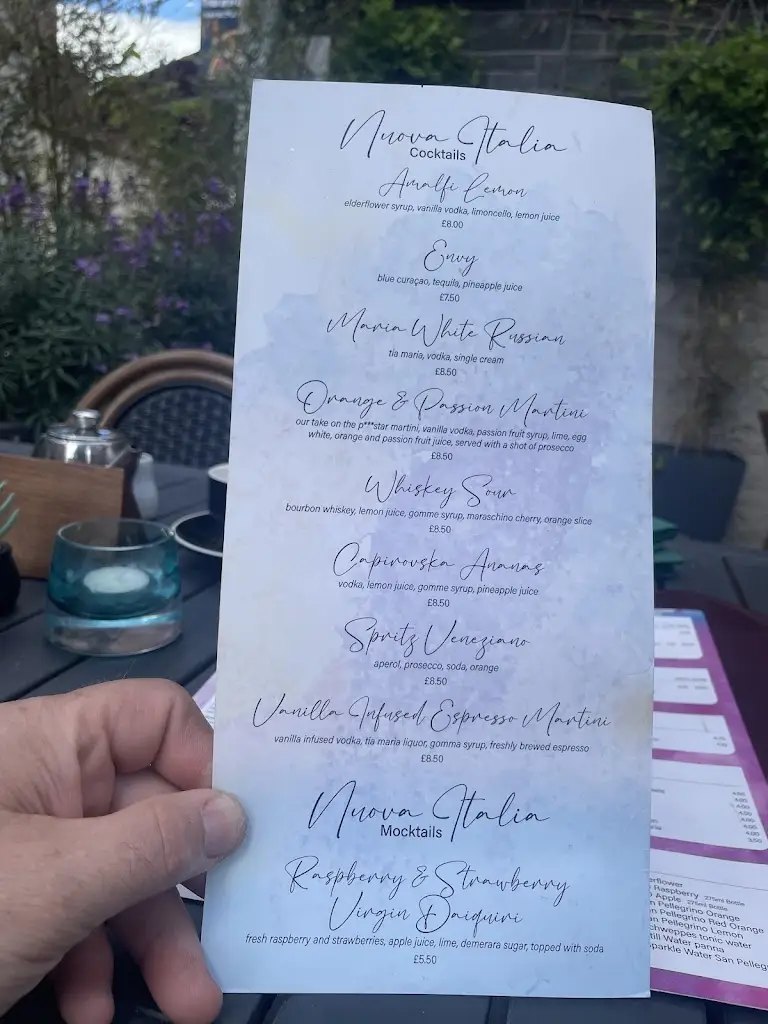 Nuova Italia
Cocktails
Amalfi Lemon
elderflower syrup, vanilla vodka, limoncello, lemon juice
£8.00
Envy
blue curaçao, tequila, pineapple juice
£7.50
Maria White Russian
tia maria, vodka, single cream
£8.50
Orange & Passion Martini
our take on the p***star martini, vanilla vodka, passion fruit syrup, lime, egg
white, orange and passion fruit juice, served with a shot of prosecco
£8.50
Whiskey Sour
bourbon whiskey, lemon juice, gomme syrup, maraschino cherry, orange slice
£8.50
Capirovska Ananas
vodka, lemon juice, gomme syrup, pineapple juice
£8.50
Spritz Veneziano
aperol, prosecco, soda, orange
£8.50
Vanilla Infused Espresso Martini
vanilla infused vodka, tia maria liquor, gomma syrup, freshly brewed espresso
£8.50
Nuova Italia
Mocktails
Raspberry & Strawberry
Virgin Daiquiri
fresh raspberry and strawberries, apple juice, lime, demerara sugar, topped with soda
£5.50
4.00
4.00
4.00
4.00
4.00
3.50
erflower
Raspberry 275ml Bottle
Apple 275ml Bottle
n Pellegrino Orange
n Pellegrino Red Orange
an Pellegrino Lemon
chweppes tonic water
till Water panna
parkle Water San Pelleg